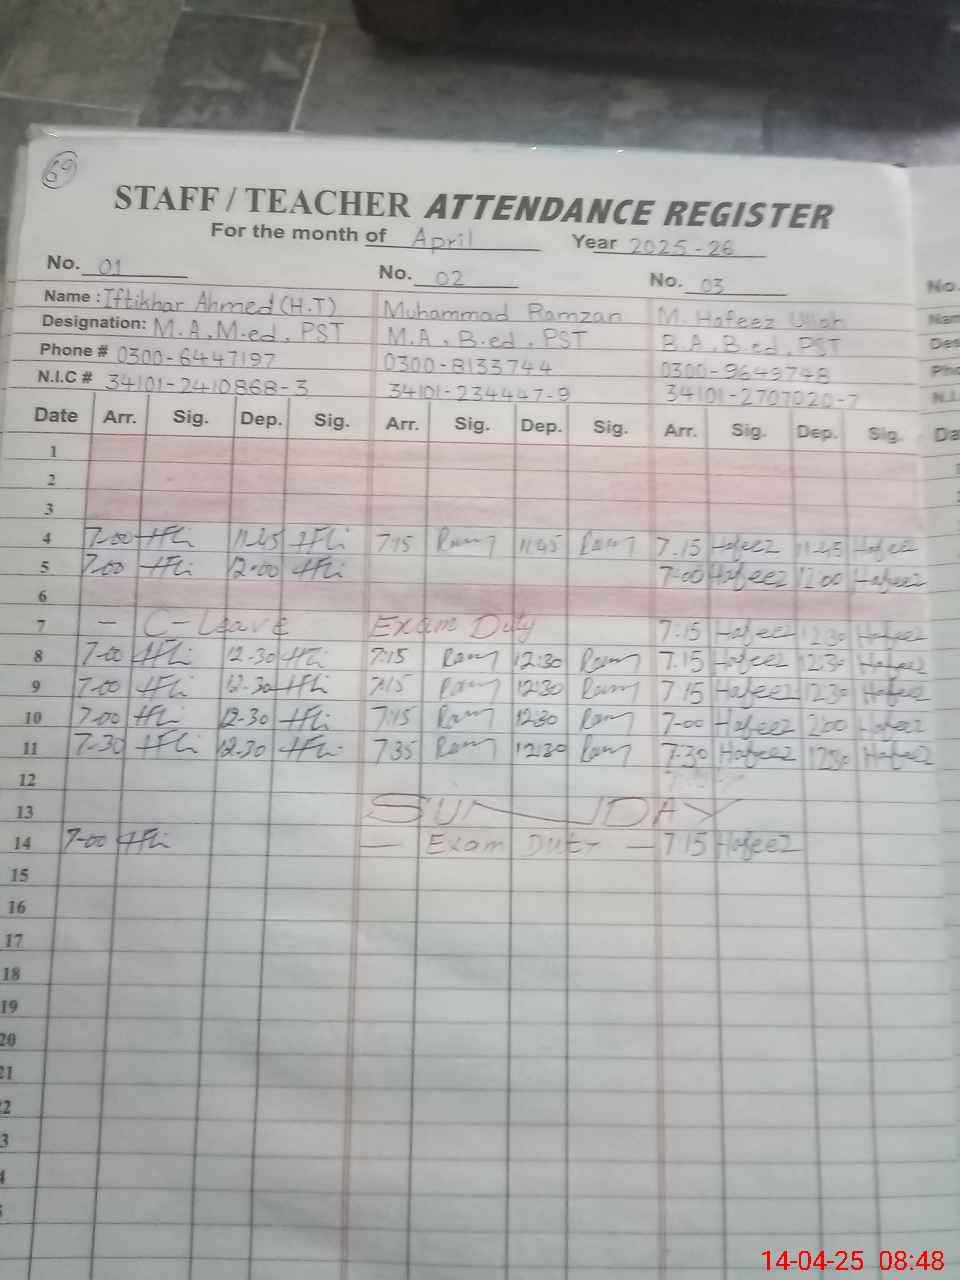 69
STAFF / TEACHER ATTENDANCE REGISTER
For the month of April Year 2025-26
No. 01 No. 02 No. 03 No.
Name : Iftikhar Ahmed (H.T) Muhammad Ramzan M. Hafeez Ullah Nam
Designation: M.A, M.ed, PST M.A, B.ed, PST B.A, B.ed, PST Des
Phone # 0300-6447197 0300-8133744 0300-9649748 Pho
N.I.C # 34101-2410868-3 34101-234447-9 34101-2707020-7 N.I.
Date Arr. Sig. Dep. Sig. Arr. Sig. Dep. Sig. Arr. Sig. Dep. Sig. Da
1
2
3
4 7-00 11.45 7:15 Ram 11:45 Ram 7.15 Hafeez 11.45 Hafeez
5 7-00 12-00 7-00 Hafeez 12:00 Hafeez
6
7 — C-Leave Exam Duty 7:15 Hafeez 12:30 Hafeez
8 7-00 12-30 7:15 Ram 12:30 Ram 7.15 Hafeez 12:30 Hafeez
9 7-00 12-30 7:15 Ram 12:30 Ram 7.15 Hafeez 12:30 Hafeez
10 7-00 12-30 7:15 Ram 12:30 Ram 7-00 Hafeez Hafeez
11 7-30 12-30 7:35 Ram 12:30 Ram 7:30 Hafeez 12:30 Hafeez
12
13 SUNDAY
14 7-00 — Exam Duty — 7:15 Hafeez
15
16
17
18
19
20
21
2
3
4
14-04-25 08:48